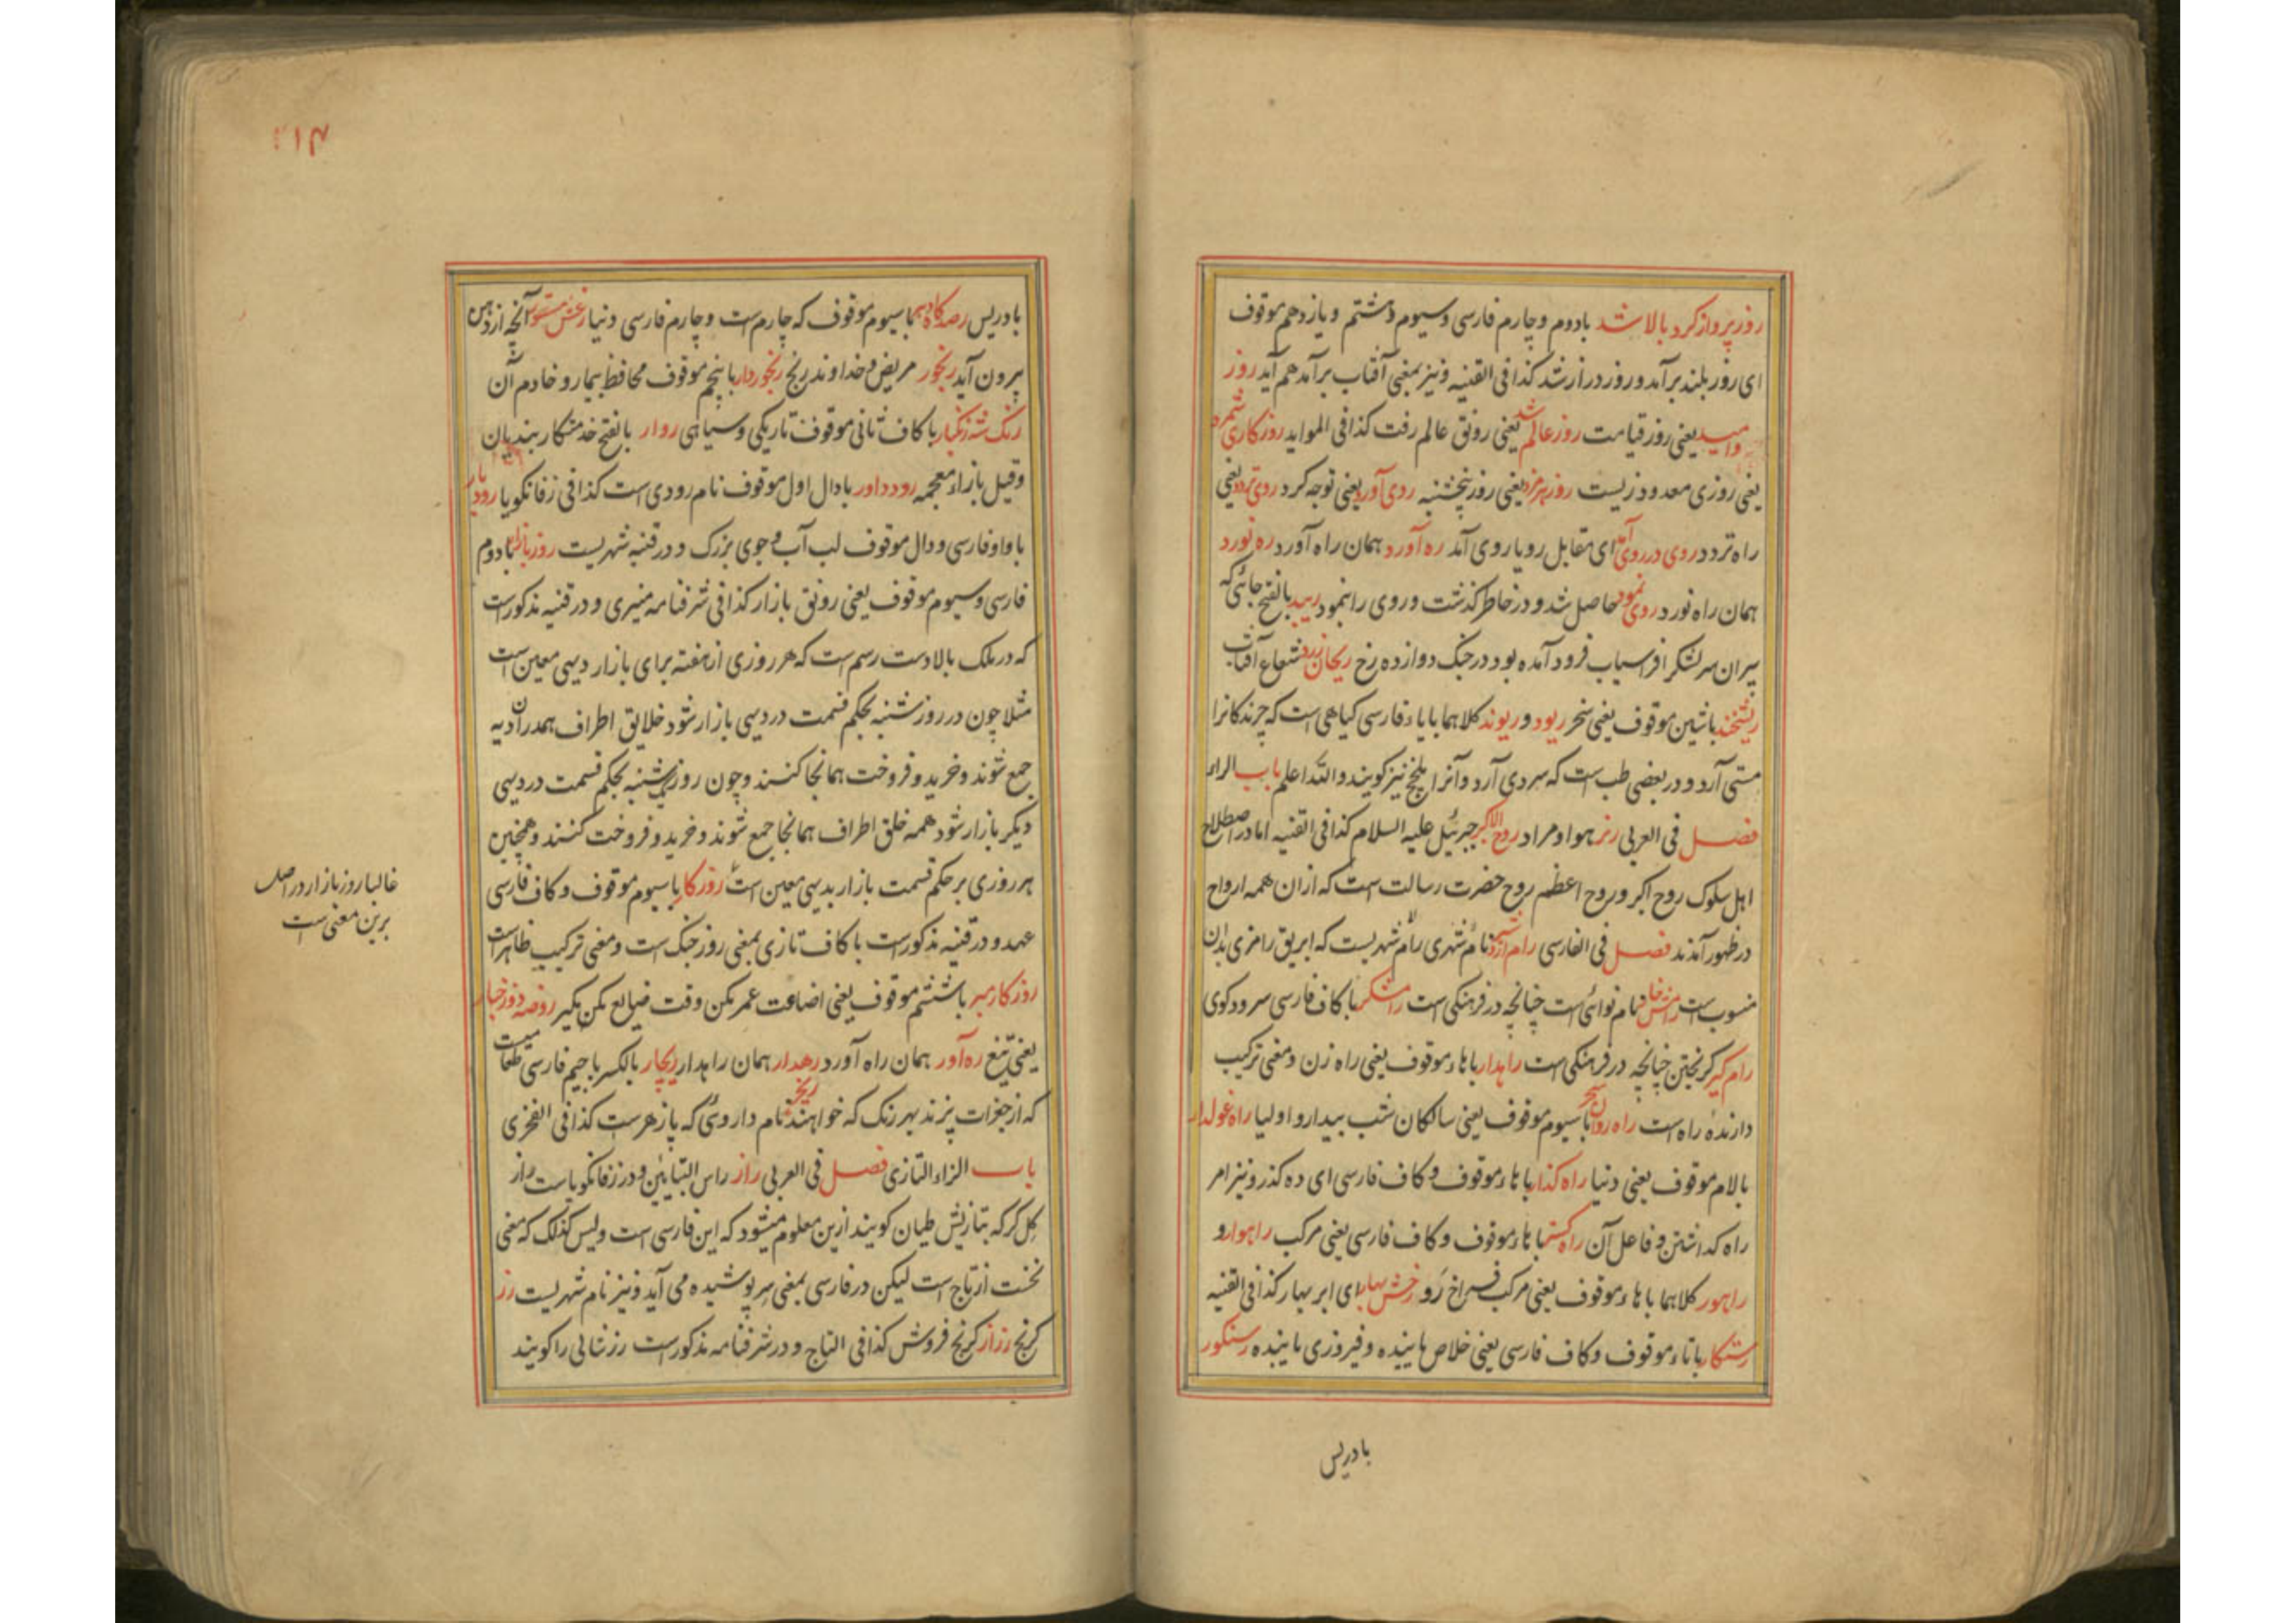 روز پرواز کرد بالا شد بادوم و چارم فارسی و سیوم و هشتم و یازدهم موقوف
ای روز بلند برآمد و روز دراز شد کذا فی القنیه و نیز بمعنی آفتاب برآمد هم آید روز
امید یعنی روز قیامت روز عالم شد یعنی رونق عالم رفت کذا فی الموايد روزکاری شمرد
یعنی روزی معدود زیست روز هرمزد یعنی روز پنجشنبه روی آورد یعنی توجه کرد روی تردد یعنی
راه تردد روی در روی آمد ای مقابل رویا روی آمد ره آورد همان راه آورد ره نورد
همان راه نورد روی نمود حاصل شد و در خاطر کذشت و روی را بنمود ریبد بالفتح جائی که
پیران سر لشکر افراسیاب فرود آمده بود در جنک دوازده رخ ریحان زرد شعاع آفتاب
ریشخند باشین موقوف یعنی سخر ریود و ریوند کلاهما بایاء فارسی کیاهی است که چرندکانرا
مستی آرد و در بعضی طب است که سردی آرد و آنرا بلنج نیز کویند والله اعلم باب الراء
فصل فی العربی هوا و مراد روح الاکبر جبرئیل علیه السلام کذا فی القنیه اما در اصطلاح
اهل سلوک روح اکبر و روح اعظم روح حضرت رسالت است که ازان همه ارواح
در ظهور آمدند فصل فی الفارسی رام اردشیر نام شهری رام شهریست که ابریق رامزی بدان
منسوب است رامش خار نام نوائی است چنانچه در فرهنکی است رامشکر باکاف فارسی سرود کوی
رام کیر کریختن چنانچه در فرهنکی است راهدار باهاء موقوف یعنی راه زن و معنی ترکیب
دارندۀ راه است راه روان سحر باسیوم موقوف یعنی سالکان شب بیدار و اولیا راه غولدار
بالام موقوف یعنی دنیا راه کذار باهاء موقوف و کاف فارسی ای ده کذر و نیز امر
راه کذاشتن و فاعل آن راه کستر باهاء موقوف و کاف فارسی یعنی مرکب راهوار و
راهور کلاهما باهاء موقوف یعنی مرکب فراخ رو رخش بهار ای ابر بهار کذا فی القنیه
رستکار باتاء موقوف و کاف فارسی یعنی خلاص یابنده و فیروزی یابنده رستکور
بادریس
بادریس رصدکاه دهر باسیوم موقوف که چارمست و چارم فارسی دنیا آنچه از دهن
بیرون آید رنجور مریض و خداوند رنج رنجوردار باپنجم موقوف محافظ بیمار و خادم آن
رنک شه زنکبار باکاف ثانی موقوف تاریکی و سیاهی روار بالفتح خدمتکار بندیان
وقیل بازاء معجمه روداور بادال اول موقوف نام رودی است کذا فی زفانکویا رودبار
باواو فارسی و دال موقوف لب آب و جوی بزرک و در قنیه شهریست روز بازار بادوم
فارسی و سیوم موقوف یعنی رونق بازار کذا فی شرفنامه منیری و در قنیه مذکورست
که در ملک بالادست رسم است که هر روزی از هفته برای بازار دیهی معین است
مثلا چون در روز شنبه بحکم قسمت در دیهی بازار شود خلایق اطراف همدران دیه
جمع شوند و خرید و فروخت همانجا کنند و چون روز یکشنبه بحکم قسمت در دیهی
دیکر بازار شود همه خلق اطراف همانجا جمع شوند و خرید و فروخت کنند و همچنین
هر روزی بر حکم قسمت بازار بدیهی معین است روزکار باسیوم موقوف و کاف فارسی
عهد و در قنیه مذکورست باکاف تازی بمعنی روز جنک است و معنی ترکیب ظاهرست
روزکار مبر باششم موقوف یعنی اضاعت عمر مکن وقت ضایع مکن مکیر روضه دوزخ بار
یعنی تیغ ره آور همان راه آورد رهدار همان راهدار ریچار بالکسر باجیم فارسی طعامیست
که از جغرات پزند بهر رنک که خواهند نام داروئی که پازهرست کذا فی الفخری
باب الزاء التازی فصل فی العربی راز راس البنایین و در زفانکویاست راز
کل کر که بتازیش طیان کویند ازین معلوم میشود که این فارسی است ولیس کذلک که معنی
نخست از تاج است لیکن در فارسی بمعنی سر پوشیده می آید و نیز نام شهریست رز
کرنج رزاز کرنج فروش کذا فی التاج و در شرفنامه مذکورست رز شالی را کویند
غالبا روز بازار در اصل
برین معنی است